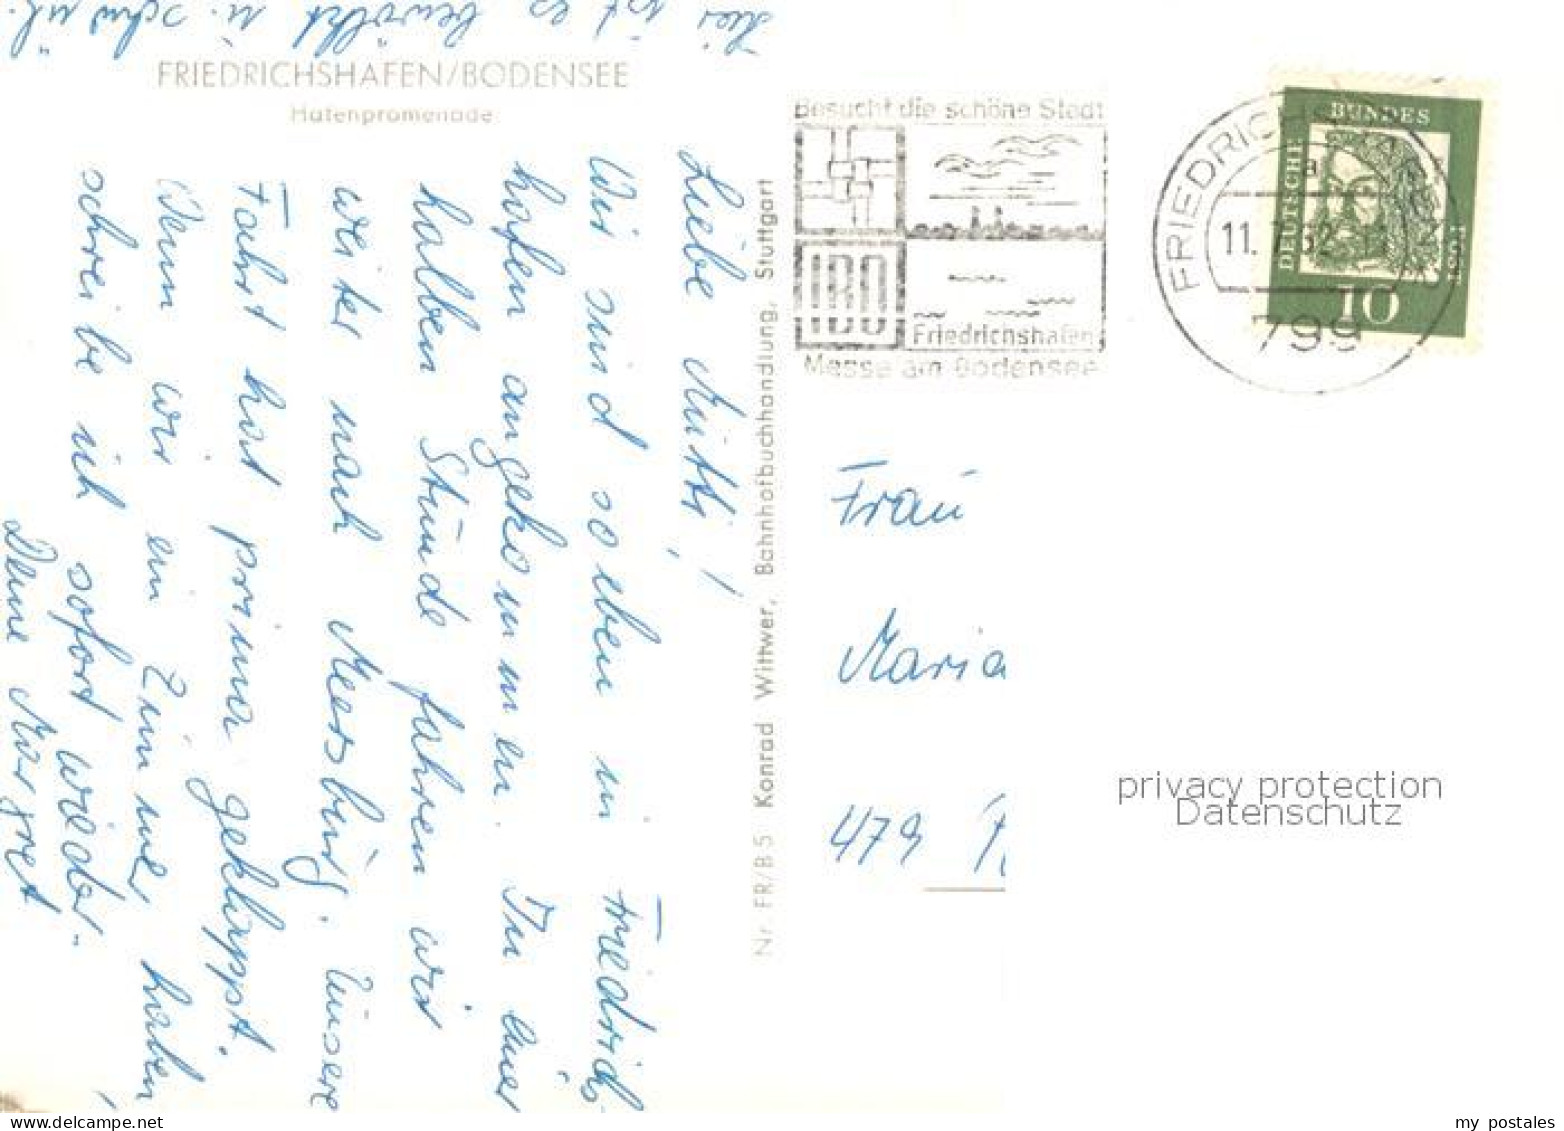 Hier ist es bewölkt u. schwül.
FRIEDRICHSHAFEN/BODENSEE
Hafenpromenade
Liebe Mutti!
Wir sind soeben in Friedrichs-
hafen angekommen. In einer
halben Stunde fahren wir
weiter nach Meersburg. Unsere
Fahrt hat prima geklappt.
Wenn wir ein Zimmer haben,
schreibe ich sofort wieder.
Deine Margret
Nr. FR/B 5 Konrad Wittwer, Bahnhofbuchhandlung, Stuttgart
Besucht die schöne Stadt
IBO
Friedrichshafen
Messe am Bodensee
FRIEDRICHSHAFEN
11.7.62
a
799
DEUTSCHE
BUNDES
POST
10
Frau
Maria
479
privacy protection
Datenschutz
www.delcampe.net
my_postales